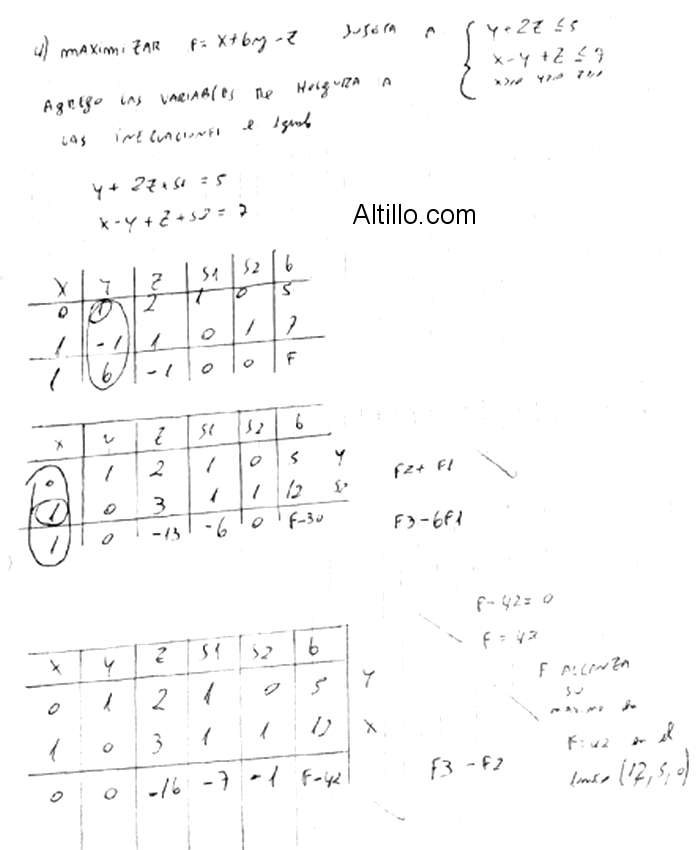 4) MAXIMIZAR F= X+6y-Z SUJETA A { y+2Z ≤ 5
x-y+Z ≤ 7
x≥0 y≥0 z≥0
AGREGO LAS VARIABLES DE HOLGURA A
LAS INECUACIONES e igualo
y+2Z+S1 = 5
x-y+Z+S2 = 7
Altillo.com
X Y Z S1 S2 b
0 1 2 1 0 5
1 -1 1 0 1 7
1 6 -1 0 0 F
x y Z S1 S2 b
0 1 2 1 0 5 y
1 0 3 1 1 12 S2 F2+F1
1 0 -13 -6 0 F-30 F3-6F1
F-42=0
F=42
X Y Z S1 S2 b
0 1 2 1 0 5 Y
1 0 3 1 1 12 X
0 0 -16 -7 -1 F-42 F3-F2
F ALCANZA
SU
MAXIMO en
F=42 en el
(12,5,0)